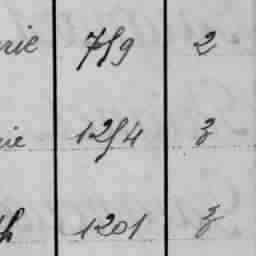 rie 759 2
ie 1254 3
th 1201 3